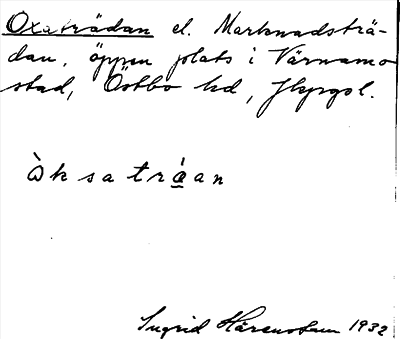 Oxaträdan el. Marknadsträ-
dan, öppen plats i Värnamo
stad, Östbo hd, Jkpgsl.
òksatrá̱an
Ingrid Härenstam 1932